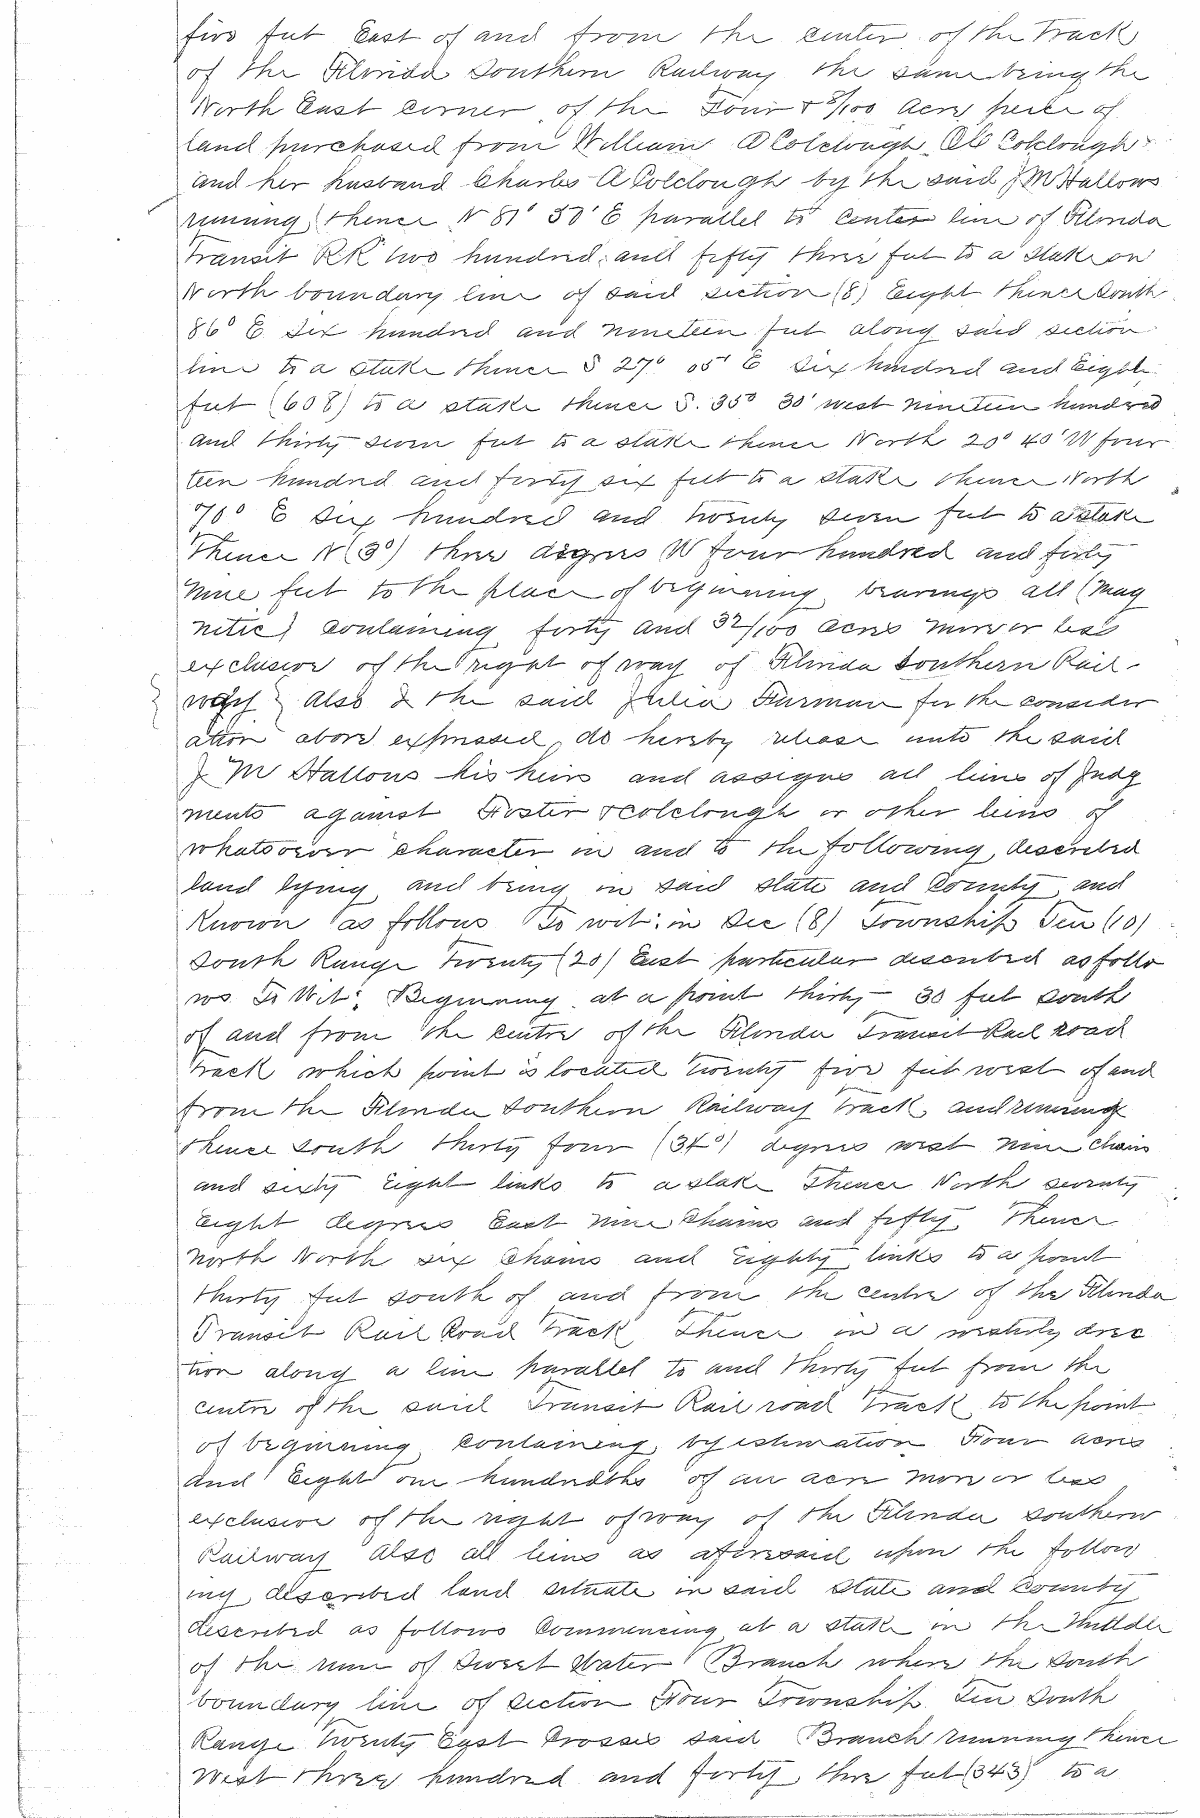 five feet East of and from the center of the Track
of the Florida Southern Railway the same being the
North East corner of the Four & 8/100 Acre peice of
land purchased from William A Colclough Colclough
and her husband Charles A Colclough by the said J M Hallows
running thence N 81° 30' E parallel to center line of Florida
Transit RR two hundred and fifty three feet to a stake on
North boundary line of said section (8) Eight thence South
86° E Six hundred and nineteen feet along said section
line to a stake thence S 27° 05' E Six hundred and Eight
feet (608) to a stake thence S. 35° 30' west nineteen hundred
and thirty seven feet to a stake thence North 20° 40' W four
teen hundred and forty six feet to a stake thence North
70° E Six hundred and twenty seven feet to a stake
Thence N (3°) three degrees W four hundred and forty
nine feet to the place of beginning bearings all (Mag
nitic) containing forty and 32/100 acres more or less
exclusive of the right of way of Florida Southern Rail-
way } Also I the said Julia Furman for the consider
ation above expressed do hereby release unto the said
J M Hallows his heirs and assigns all liens of Judg
ments against Foster & Colclough or other liens of
whatsoever character in and to the following described
land lying and being in said state and County and
Known as follows To wit: in Sec (8) Township Ten (10)
South Range Twenty (20) East particular described as follo
ws To Wit: Beginning at a point thirty - 30 feet south
of and from the centre of the Florida Transit Rail road
Track which point is located twenty five feet west of and
from the Florida Southern Railway Track, and running
thence south thirty four (34°) degrees west nine Chains
and sixty Eight links to a stake Thence North seventy
Eight degrees East nine Chains and fifty Thence
North North six Chains and Eighty links to a point
thirty feet south of and from the centre of the Florida
Transit Rail Road Track Thence in a westerly direc
tion along a line parallel to and thirty feet from the
centre of the said Transit Rail road Track to the point
of beginning containing by estimation Four acres
and Eight one hundredths of an acre more or less
exclusive of the right of way of the Florida Southern
Railway Also all liens as aforesaid upon the follow
ing described land situate in said state and County
described as follows Commencing at a stake in the Middle
of the run of Sweet Water Branch where the South
boundary line of section Four Township Ten South
Range Twenty East Crosses said Branch running thence
West three hundred and forty three feet (343) to a